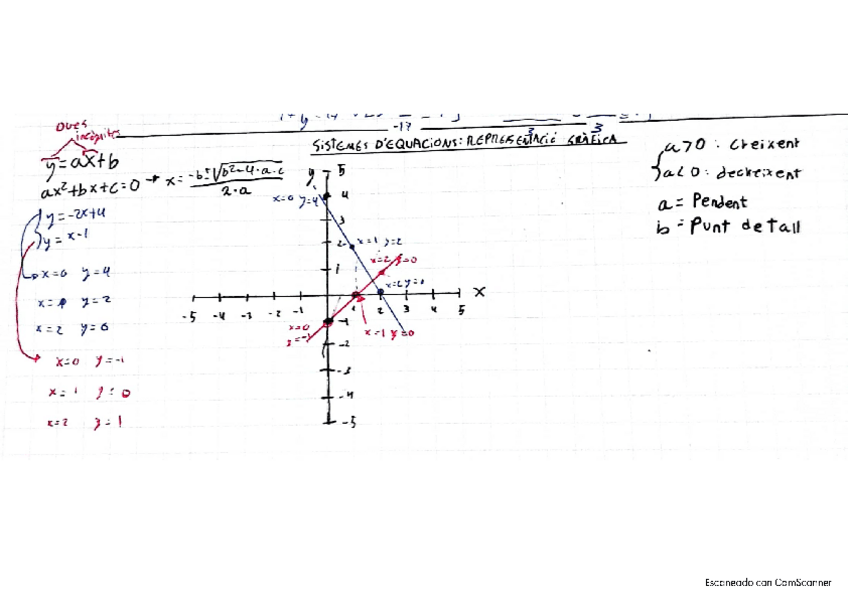 -17
3
3
Dues
incògnites
SISTEMES D'EQUACIONS: REPRESENTACIÓ GRÀFICA
y=ax+b
ax²+bx+c=0 → x= -b±√b²-4·a·c
2·a
y=-2x+4
y= x-1
x=0 y=4
x=1 y=2
x=2 y=0
x=0 y=-1
x=1 y=0
x=2 y=1
y
5
4
3
2
1
x=0 y=4
x=1 y=2
x=2 y=0
x=2 y=0
-5 -4 -3 -2 -1 1 2 3 4 5 X
x=0
y=-1
x=1 y=0
-1
-2
-3
-4
-5
a>0: Creixent
a<0: decreixent
a= Pendent
b= Punt de tall
Escaneado con CamScanner